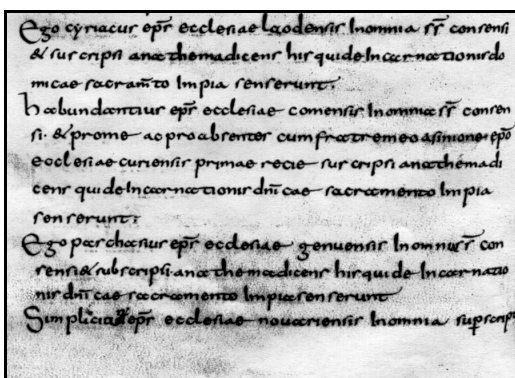 Ego cyriacus epr̄ ecclesiae laodensis In omnia ss̄ consensi
& suscripsi anathema dicens his qui de Incarnationis do
micae sacram̄to Impia senserunt.
habundantius epr̄ ecclesiae comensis In omnia ss̄ consen
si. & pro me ac pro absente cum fratre meo asinione. ep̄o
ecclesiae curiensis primae recie suscripsi anathema di
cens qui de Incarnationis dn̄icae sacramento Impia
senserunt:
Ego paschasius epr̄ ecclesiae genuensis In omnius ss̄ con
sensi & subscripsi. anathema dicens his qui de Incarnatio
nis dn̄icae sacramento Impia senserunt
epr̄ ecclesiae novariensis In omnia suprascript